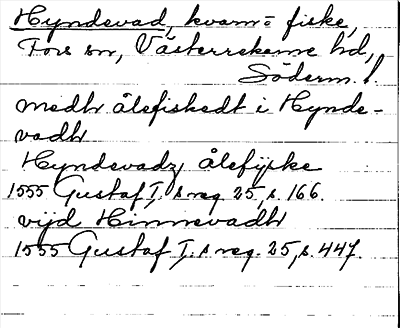 Hyndevad, kvarn = fiske,
Fors sn, Västerrekarne hd,
Söderm. l.
medh ålefiskedt i Hynde-
vadh
Hyndevadz ålefijske
1555 Gustaf I:s reg. 25, s. 166.
vijd Hinnevadh
1555 Gustaf I:s reg. 25, s. 447.